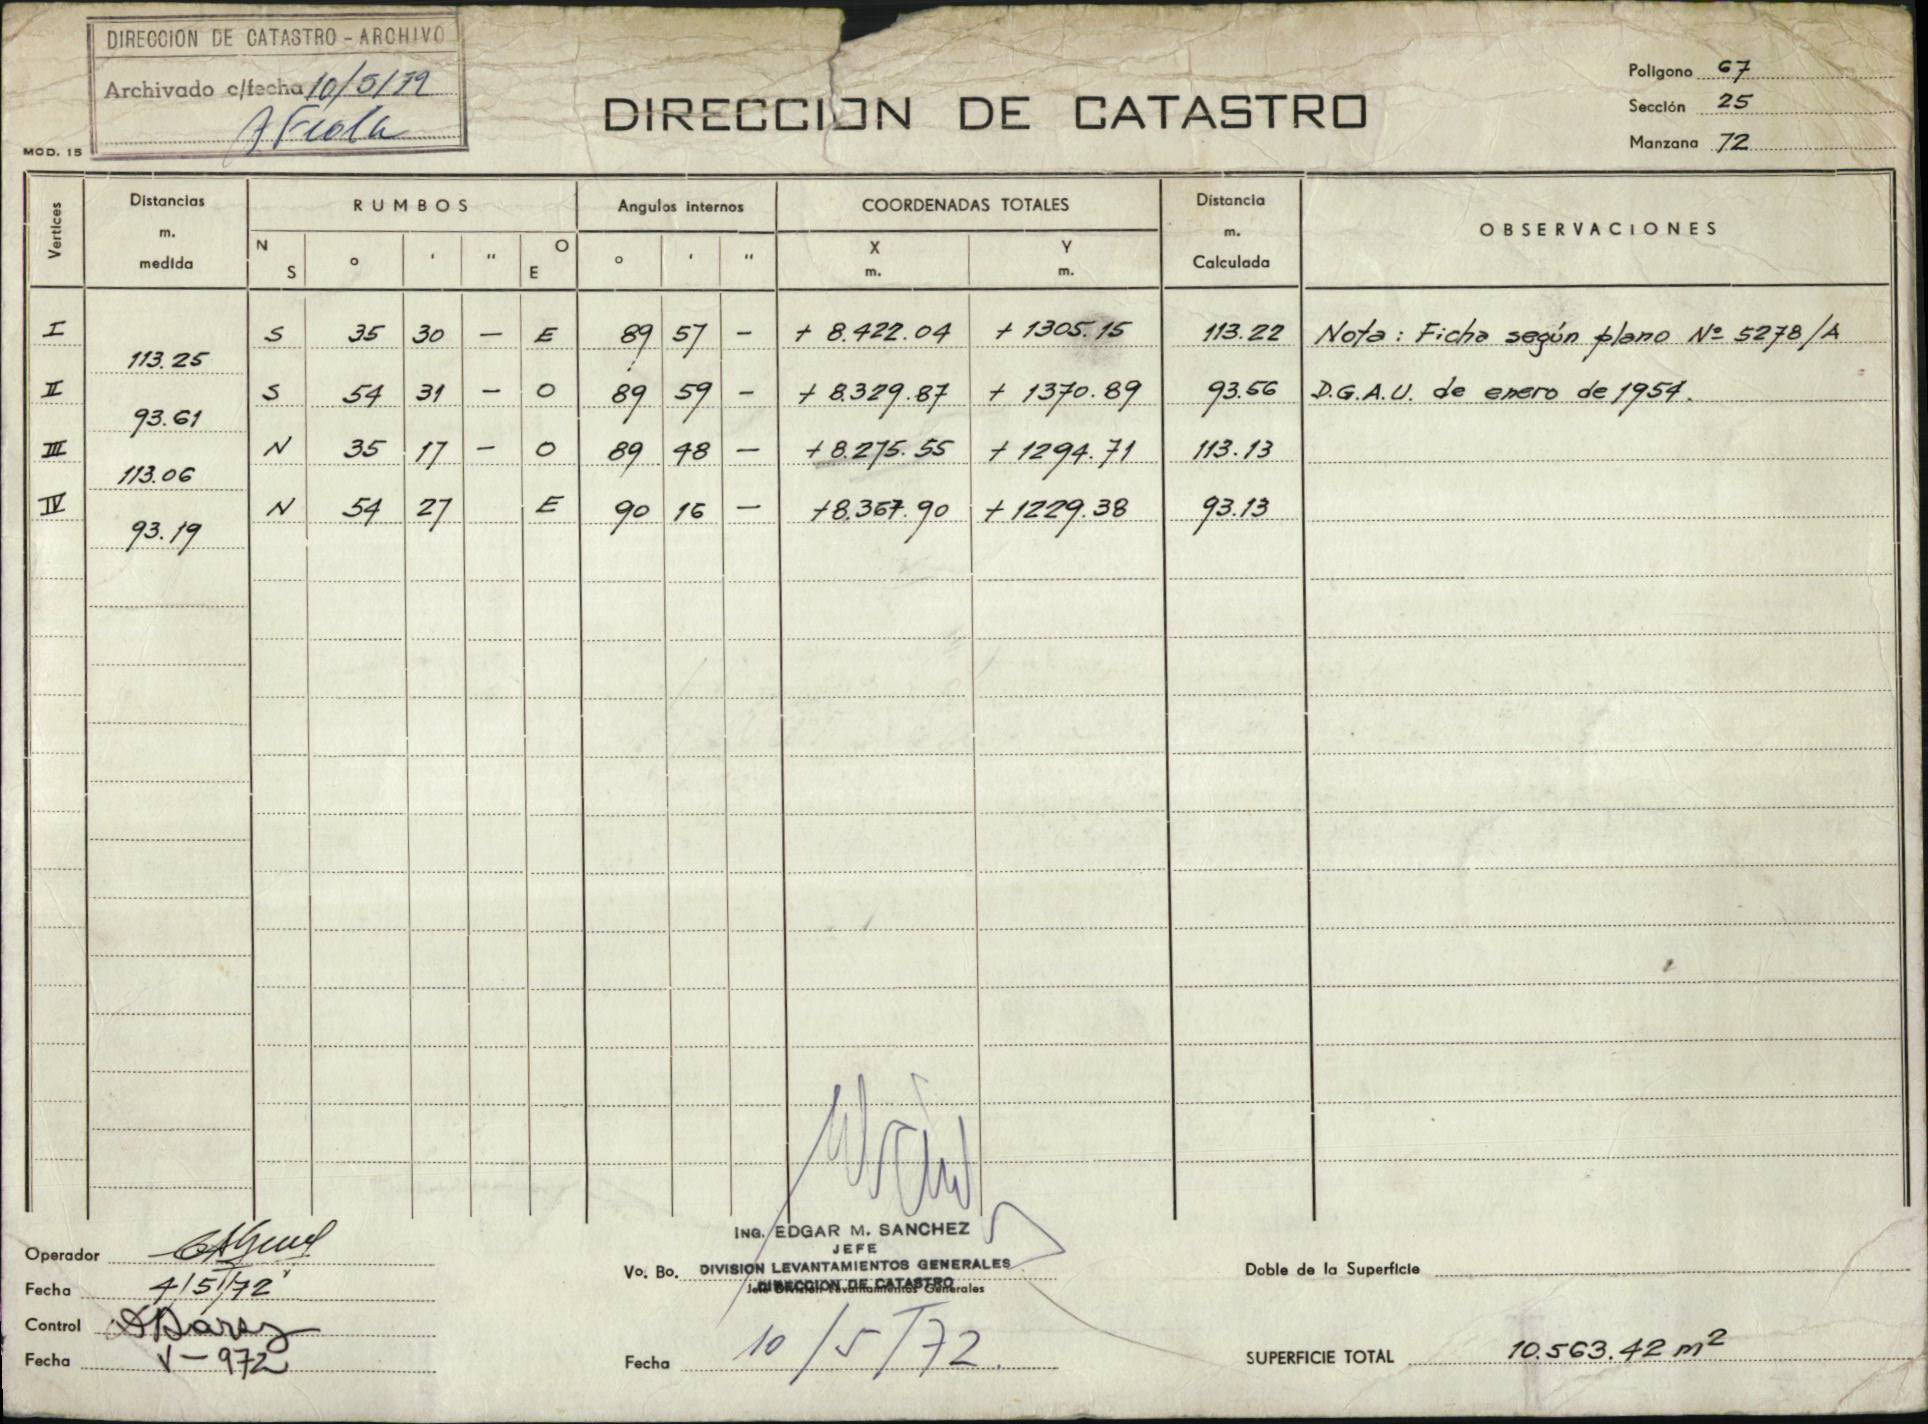 DIRECCION DE CATASTRO - ARCHIVO
Archivado c/fecha 10/5/72
MOD. 15
DIRECCION DE CATASTRO
Polígono 67
Sección 25
Manzana 72
Vertices Distancias m. medida RUMBOS Angulos internos COORDENADAS TOTALES Distancia m. Calculada OBSERVACIONES
N S ° ' " O E ° ' " X m. Y m.
I S 35 30 — E 89 57 - + 8.422.04 + 1305.15 113.22 Nota: Ficha según plano Nº 5278/A
113.25
II S 54 31 — O 89 59 - + 8.329.87 + 1370.89 93.56 D.G.A.U. de enero de 1954.
93.61
III N 35 17 - O 89 48 — + 8.275.55 + 1294.71 113.13
113.06
IV N 54 27 E 90 16 — +8.367.90 + 1229.38 93.13
93.19
Operador
Fecha 4/5/72
Control
Fecha V-972
ING. EDGAR M. SANCHEZ
JEFE
Vo. Bo. DIVISION LEVANTAMIENTOS GENERALES
DIRECCION DE CATASTRO
Jefe División Levantamientos Generales
Fecha 10/5/72.
Doble de la Superficie
SUPERFICIE TOTAL 10.563.42 m²